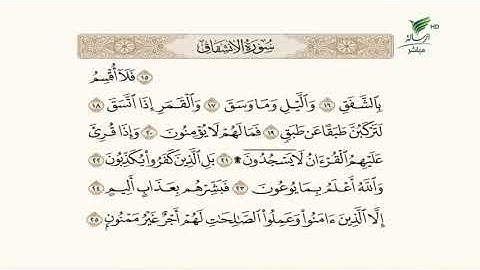 HD
الرسالة
مباشر
سُورَةُ الِانشِقَاقِ
١٥ فَلَآ أُقْسِمُ
بِٱلشَّفَقِ ١٦ وَٱلَّيْلِ وَمَا وَسَقَ ١٧ وَٱلْقَمَرِ إِذَا ٱتَّسَقَ ١٨
لَتَرْكَبُنَّ طَبَقًا عَن طَبَقٍ ١٩ فَمَا لَهُمْ لَا يُؤْمِنُونَ ٢٠ وَإِذَا قُرِئَ
عَلَيْهِمُ ٱلْقُرْءَانُ لَا يَسْجُدُونَ ۩ ٢١ بَلِ ٱلَّذِينَ كَفَرُوا۟ يُكَذِّبُونَ ٢٢
وَٱللَّهُ أَعْلَمُ بِمَا يُوعُونَ ٢٣ فَبَشِّرْهُم بِعَذَابٍ أَلِيمٍ ٢٤
إِلَّا ٱلَّذِينَ ءَامَنُوا۟ وَعَمِلُوا۟ ٱلصَّـٰلِحَـٰتِ لَهُمْ أَجْرٌ غَيْرُ مَمْنُونٍۭ ٢٥